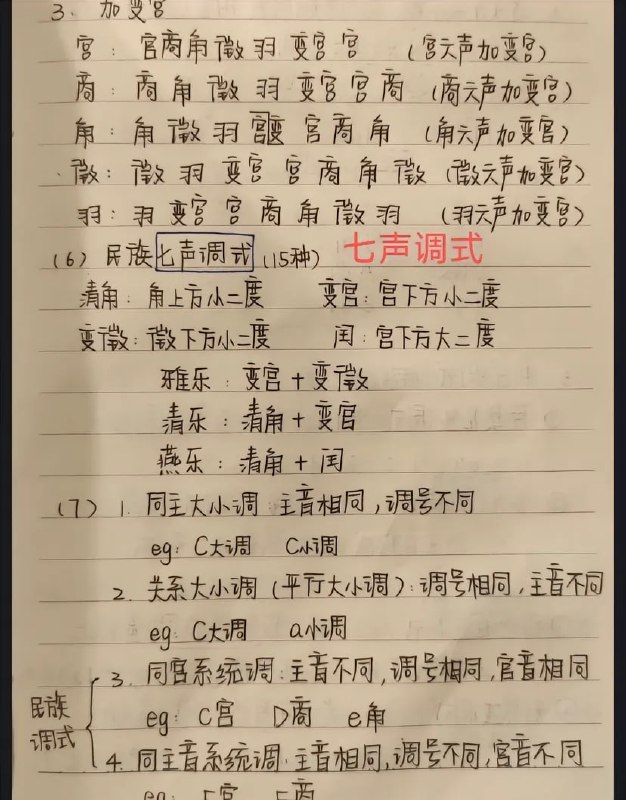 3. 加变宫
宫: 宫商角徵羽变宫宫 (宫六声加变宫)
商: 商角徵羽变宫宫商 (商六声加变宫)
角: 角徵羽变宫商角 (角六声加变宫)
徵: 徵羽变宫宫商角徵 (徵六声加变宫)
羽: 羽变宫宫商角徵羽 (羽六声加变宫)
(6) 民族七声调式 (15种) 七声调式
清角: 角上方小二度 变宫: 宫下方小二度
变徵: 徵下方小二度 闰: 宫下方大二度
雅乐: 变宫+变徵
清乐: 清角+变宫
燕乐: 清角+闰
(7) 1. 同主大小调: 主音相同, 调号不同
eg: C大调 C小调
2. 关系大小调 (平行大小调): 调号相同, 主音不同
eg: C大调 a小调
3. 同宫系统调: 主音不同, 调号相同, 宫音相同
民族调式
eg: C宫 D商 e角
4. 同主音系统调: 主音相同, 调号不同, 宫音不同